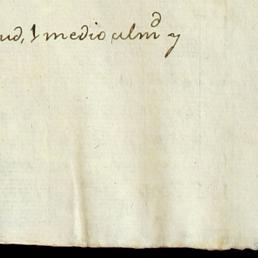 ud, 1 medio ulmd y